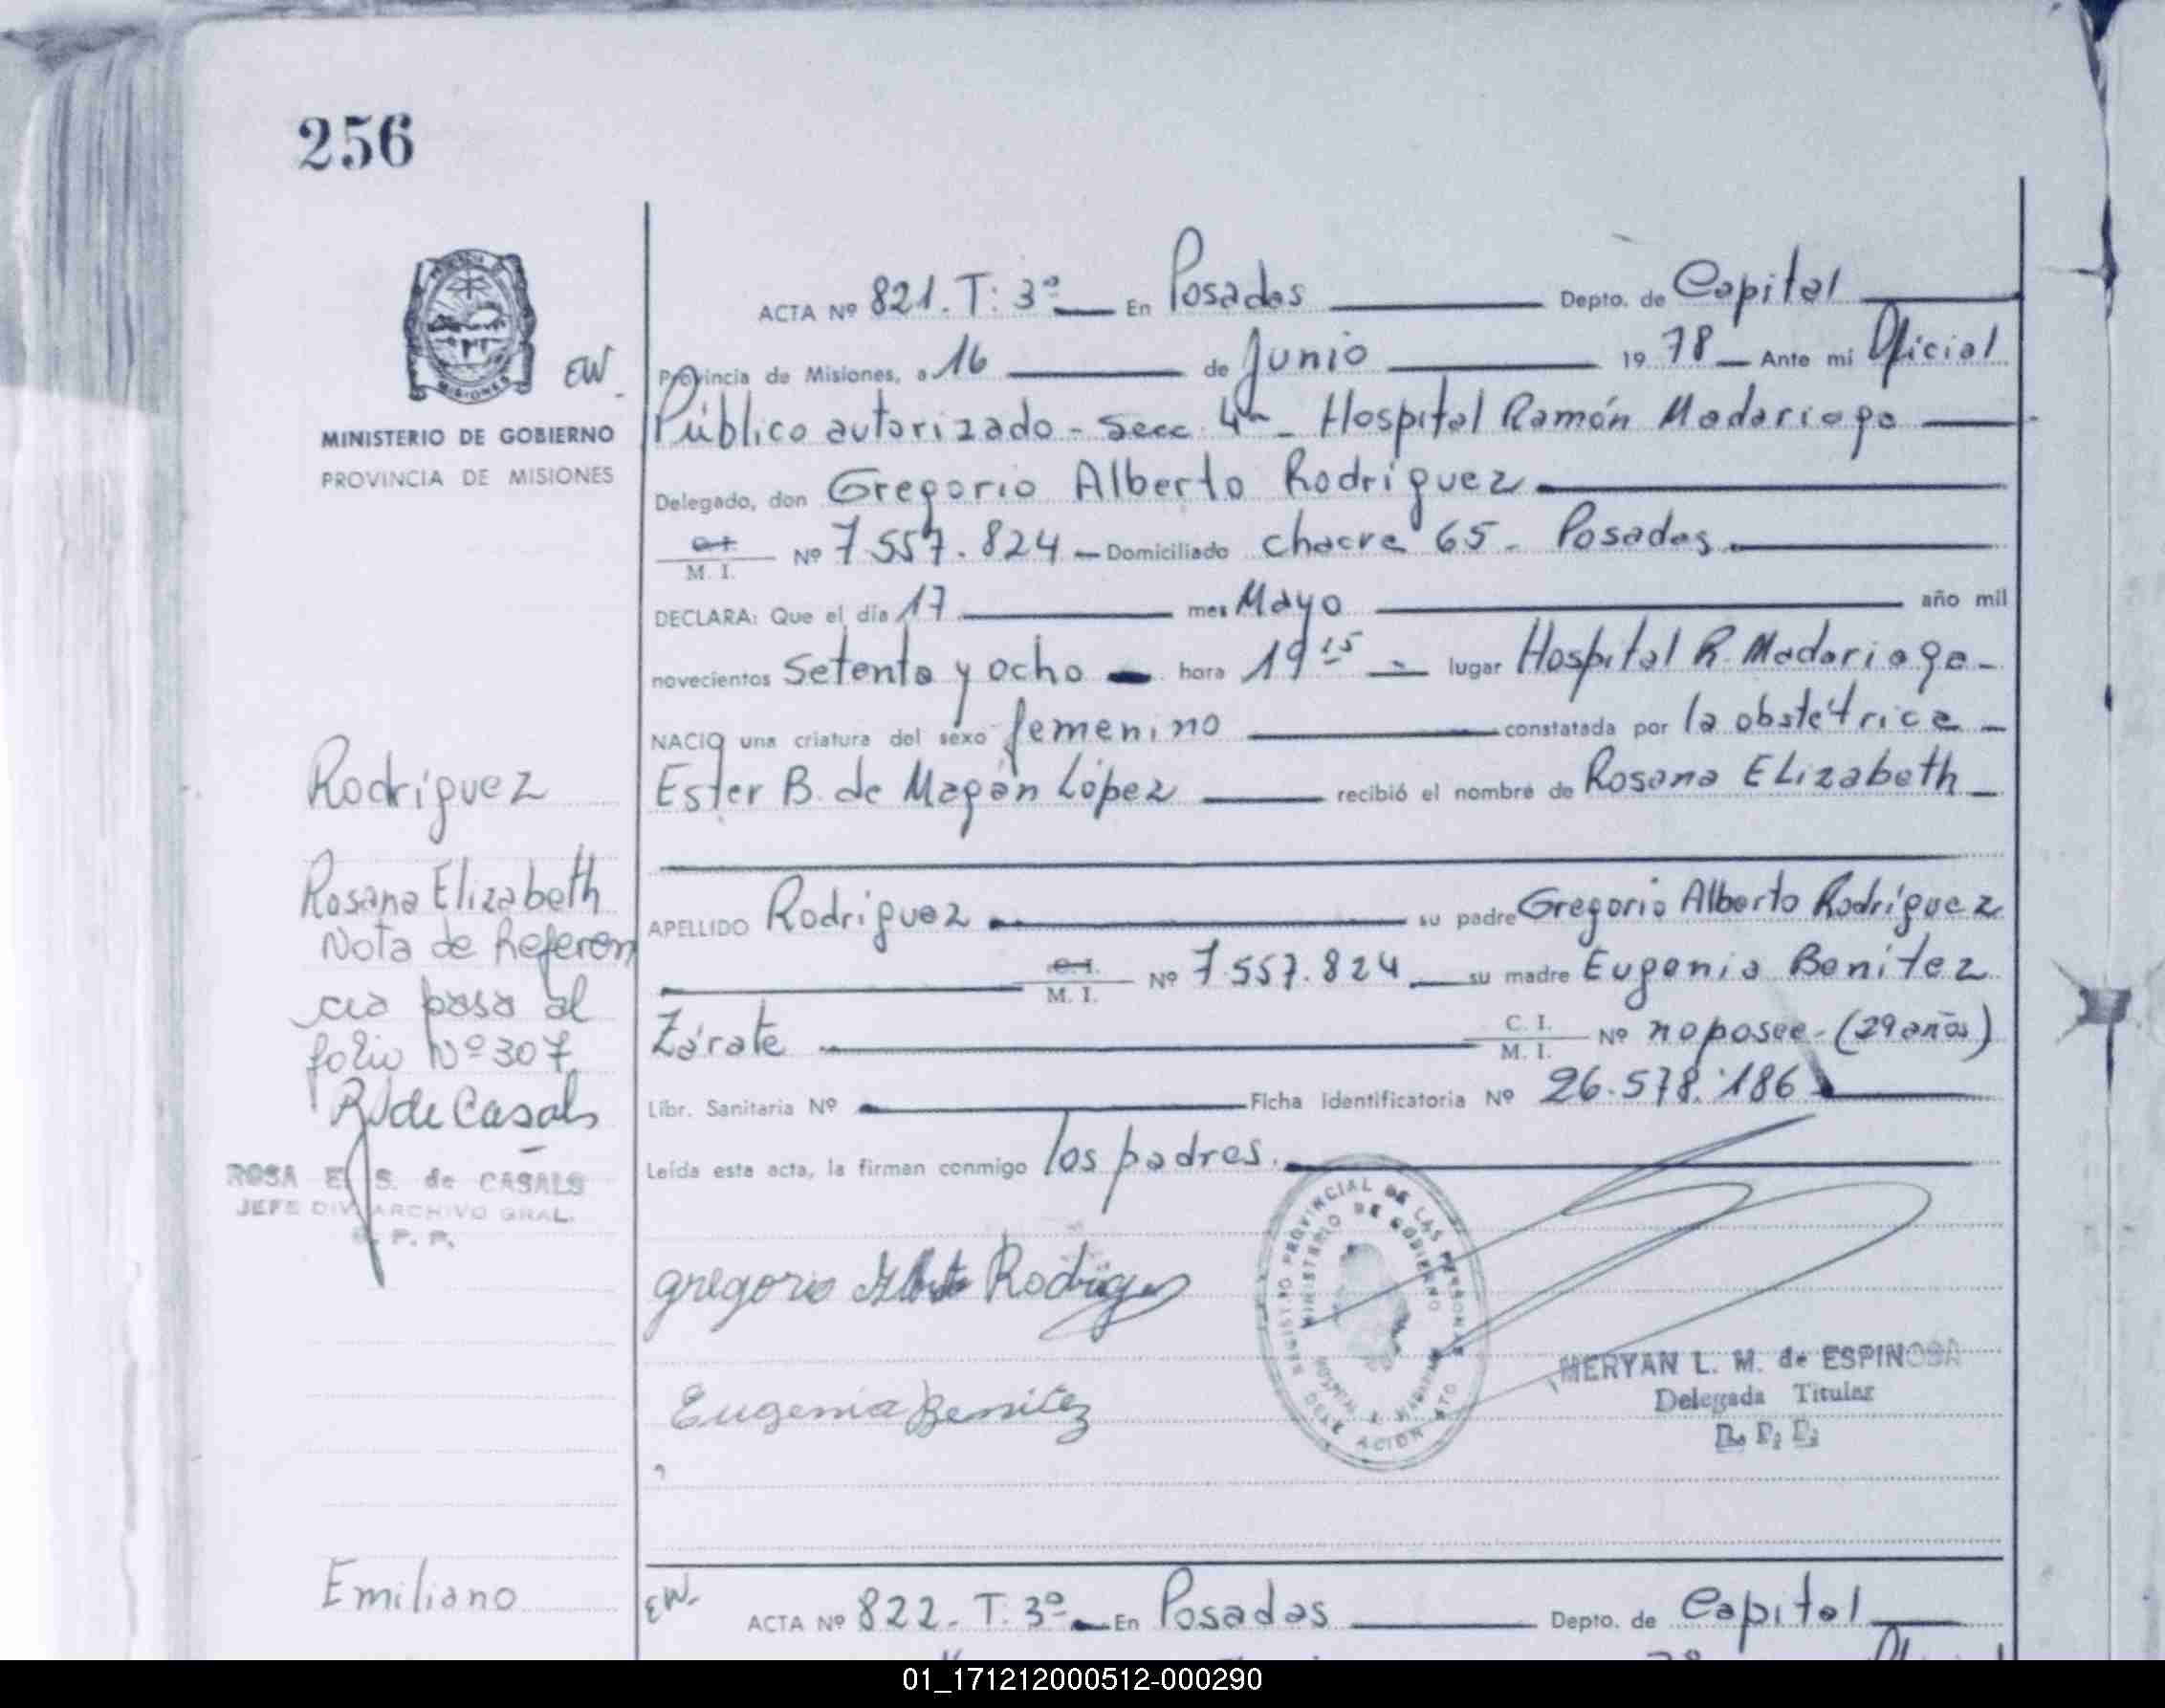 256
ACTA Nº 821. T: 3º En Posadas Depto. de Capital
EW
Provincia de Misiones, a 16 de Junio 19 78 Ante mi Oficial
MINISTERIO DE GOBIERNO
PROVINCIA DE MISIONES
Público autorizado - Secc. 4ª - Hospital Ramón Madariaga
Delegado, don Gregorio Alberto Rodríguez
C. I.
M. I. Nº 7.557.824 Domiciliado chacra 65. Posadas
DECLARA: Que el día 17 mes Mayo año mil
novecientos Setenta y ocho hora 19 15 lugar Hospital R. Madariaga
NACIO una criatura del sexo femenino constatada por la obstétrica
Ester B. de Magán López recibió el nombre de Rosana ELizabeth
APELLIDO Rodríguez su padre Gregorio Alberto Rodríguez
C. I.
M. I. Nº 7.557.824 su madre Eugenia Benítez
Zárate C. I.
M. I. Nº no posee - (29 años)
Libr. Sanitaria Nº Ficha Identificatoria Nº 26.578.186
Leída esta acta, la firman conmigo los padres.
Rodríguez
Rosana Elizabeth
Nota de Referen
cia pasa al
folio Nº 307
R de Casals
ROSA E. S. de CASALS
JEFE DIV. ARCHIVO GRAL.
P. P.
gregorio Alberto Rodriguez
Eugenia Benitez
REGISTRO PROVINCIAL DE LAS PERSONAS
MINISTERIO DE GOBIERNO
HOSPITAL R. MADARIAGA
DELEGACION
MERYAN L. M. de ESPINOSA
Delegada Titular
Emiliano
EW-
ACTA Nº 822. T. 3º En Posadas Depto. de Capital
01_171212000512-000290